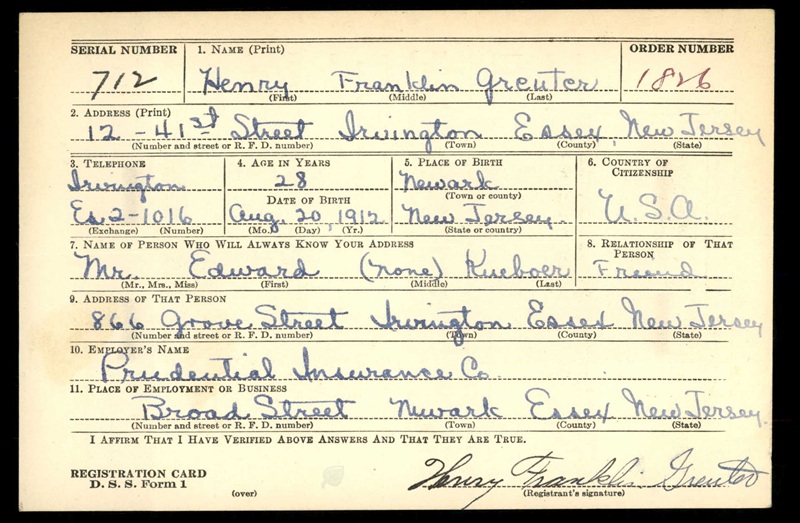 SERIAL NUMBER 1. NAME (Print) ORDER NUMBER
712 Henry Franklin Greuter 1826
(First) (Middle) (Last)
2. ADDRESS (Print)
12 - 41st Street Irvington Essex, New Jersey
(Number and street or R. F. D. number) (Town) (County) (State)
3. TELEPHONE 4. AGE IN YEARS 5. PLACE OF BIRTH 6. COUNTRY OF CITIZENSHIP
Irvington 28 Newark
DATE OF BIRTH (Town or county)
Es. 2-1016 Aug. 20, 1912 New Jersey. U.S.A.
(Exchange) (Number) (Mo.) (Day) (Yr.) (State or country)
7. NAME OF PERSON WHO WILL ALWAYS KNOW YOUR ADDRESS 8. RELATIONSHIP OF THAT PERSON
Mr. Edward (none) Kueboer Friend
(Mr., Mrs., Miss) (First) (Middle) (Last)
9. ADDRESS OF THAT PERSON
866 Grove Street Irvington Essex New Jersey
(Number and street or R. F. D. number) (Town) (County) (State)
10. EMPLOYER'S NAME
Prudential Insurance Co
11. PLACE OF EMPLOYMENT OR BUSINESS
Broad Street Newark Essex New Jersey.
(Number and street or R. F. D. number) (Town) (County) (State)
I AFFIRM THAT I HAVE VERIFIED ABOVE ANSWERS AND THAT THEY ARE TRUE.
REGISTRATION CARD
D. S. S. Form 1 Henry Franklin Greuter
(over) (Registrant's signature)